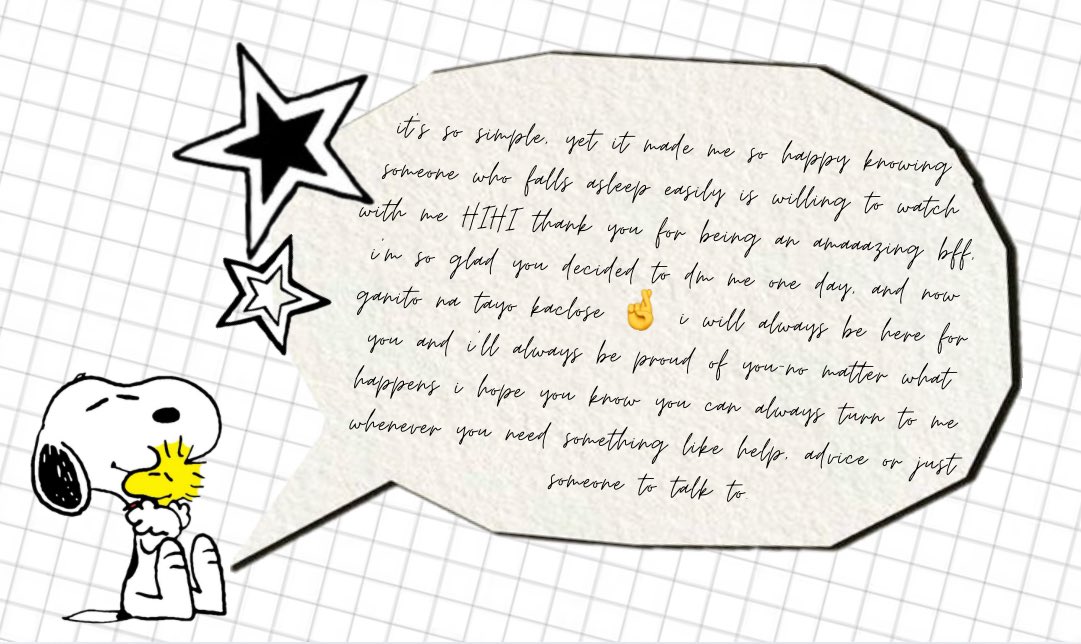 it's so simple, yet it made me so happy knowing
someone who falls asleep easily is willing to watch
with me HIHI thank you for being an amaaazing bff.
i'm so glad you decided to dm me one day, and now
ganito na tayo kaclose 🤞 i will always be here for
you and i'll always be proud of you-no matter what
happens i hope you know you can always turn to me
whenever you need something like help, advice or just
someone to talk to.